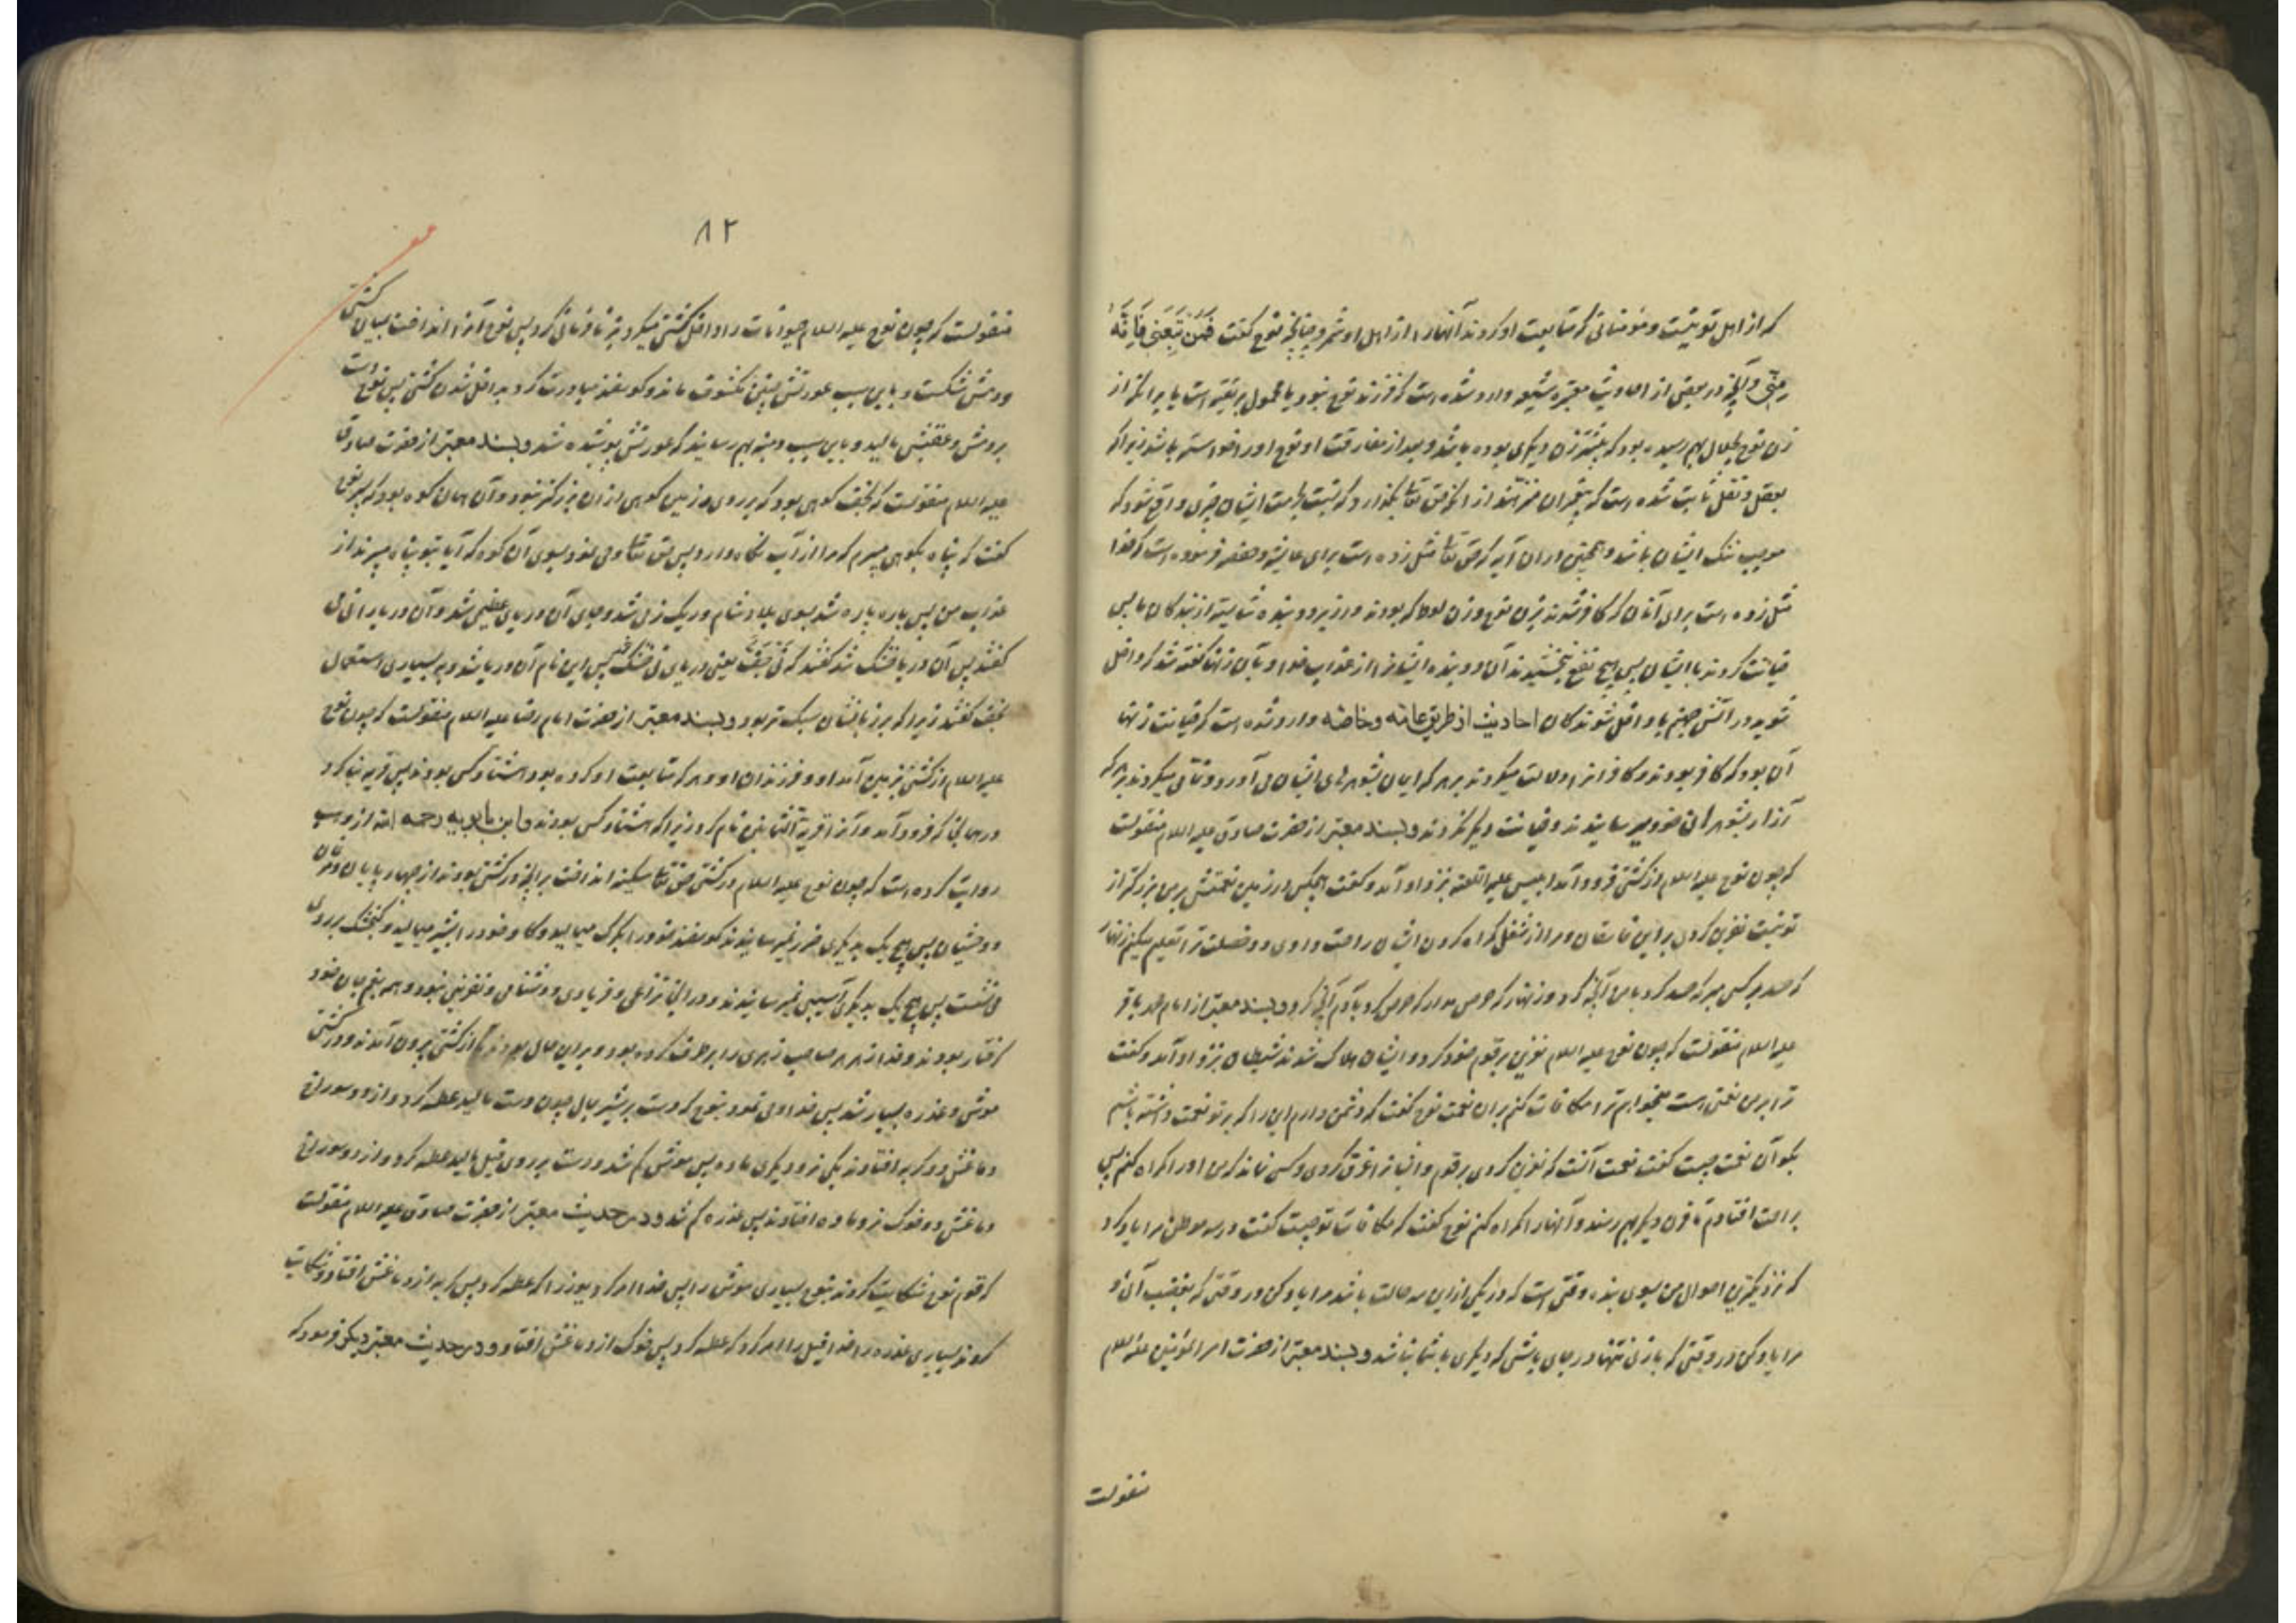 که از اهل تو نیست و مؤمنانی که متابعت او کردند آنها را از اهل او شمرد چنانچه نوح گفت فَمَن تَبِعَنی فَاِنَّهُ
مِنّی و آنچه در بعضی از احادیث معتبره شیعه وارد شده است که فرزند نوح نبود یا محمول بر تقیه است یا بر آنکه از
زن نوح بحلال بهم رسیده بود که پیشتر زن دیگری بوده باشد و بعد از مفارقت او نوح او را خواسته باشد زیرا که
بعقل و نقل ثابت شده است که پیغمبران منزهند از آنکه حق تعالی بگذارد که نسبت بحرمت ایشان چیزی واقع شود که
موجب ننگ ایشان باشد و همچنین در آن آیه که حق تعالی مثل زده است برای عایشه و حفصه فرموده است که خدا
مثل زده است برای آنان که کافر شدند بزن نوح و زن لوط که بودند در زیر دو بنده شایسته از بندگان ما پس
خیانت کردند با ایشان پس هیچ نفع نبخشیدند آن دو بنده ایشانرا از عذاب خدا و بآن زنها گفته شد که داخل
شوید در آتش جهنم با داخل شوندگان احادیث از طریق عامّه و خاصّه وارد شده است که خیانت زنها
آن بود که کافر بودند و کافرانرا دلالت میکردند بر هر که ایمان بشوهرهای ایشان می آورد و نفاق میکردند و هر که
آزار بشوهران خود میرسانیدند و خیانت دیگر نکردند و بسند معتبر از حضرت صادق علیه السلام منقولست
که چون نوح علیه السلام از کشتی فرود آمد ابلیس علیه اللعنه بنزد او آمد و گفت هیچکس در زمین نعمتش بر من بزرگتر از
تو نیست نفرین کردی بر این فاسقان و مرا از شغل گمراه کردن ایشان راحت دادی دو خصلت ترا تعلیم میکنم زنهار
که حسد بر کسی مبر که حسد کرد با من آنچه کرد و زنهار که حرص مدار که حرص کرد بآدم آنچه کرد و بسند معتبر از امام محمد باقر
علیه السلام منقولست که چون نوح علیه السلام نفرین بر قوم خود کرد و ایشان هلاک شدند شیطان بنزد او آمد و گفت
ترا بر من نعمتی است میخواهم ترا مکافات کنم بر آن نعمت نوح گفت که دشمن دارم این را که بر تو نعمت داشته باشم
بگو آن نعمت چیست گفت نعمت آنست که نفرین کردی بر قوم و ایشانرا غرق کردی و کسی نماند که من او را گمراه کنم پس
براحت افتادم تا قرن دیگر بهم رسند و آنها را گمراه کنم نوح گفت که مکافات تو چیست گفت در سه موطن مرا یاد کن
که نزدیکترین احوال من بسوی بنده وقتی است که در یکی ازین سه حالت باشد مرا یاد کن در وقتی که بغضب آئی و
مرا یاد کن در وقتی که با زنی تنها در جای باشی که دیگری با شما نباشد و بسند معتبر از حضرت امیر المؤمنین علیه السلام
منقولست
۸۲
منقولست که چون نوح علیه السلام حیوانات را داخل کشتی میکرد بز نافرمانی کرد پس نوح آنرا انداخت بمیان کشتی
و دمش شکست و باین سبب عورتش چنین مکشوف ماند و گوسفند مبادرت کرد بداخل شدن کشتی پس نوح دست
بر دمش و عقبش مالید و باین سبب دنبه بهم رسانید که عورتش پوشیده شد و بسند معتبر از حضرت صادق
علیه السلام منقولست که نجف کوهی بود که بر روی زمین کوهی از آن بزرگتر نبود و آن همان کوه بود که پسر نوح
گفت که پناه بکوهی میبرم که مرا از آب نگاه دارد پس حق تعالی وحی نمود بسوی آن کوه که آیا بتو پناه میبرند از
عذاب من پس پاره پاره شد بسوی بلاد شام و ریک نرمی شد و بجای آن دریای عظیمی شد و آن دریا را نی می
گفتند پس آن دریا خشک شد گفتند که نی جفت یعنی دریای نی خشک شد پس این نام آن دریا شد و به بسیاری استعمال
نجف گفتند زیرا که بر زبانشان سبک تر بود و بسند معتبر از حضرت امام رضا علیه السلام منقولست که چون نوح
علیه السلام از کشتی بزمین آمد او و فرزندان او و هر که متابعت او کرده بود هشتاد کس بودند پس قریه بنا کرد
در همانجا که فرود آمد و آنرا قریة الثمانین نام کرد زیرا که هشتاد کس بودند و ابن بابویه رحمه الله از وهب
روایت کرده است که چون نوح علیه السلام در کشتی حق تعالی سکینه انداخت بر آنچه در کشتی بودند از چهار پایان و مرغان
و وحشیان پس هیچ یک بدیگری ضرر نمیرسانیدند گوسفند خود را بگرگ میمالید و گاو خود را بشیر میمالید و گنجشک بر روی
می نشست پس هیچ یک بدیگری آسیبی نمیرسانیدند و در آنجا نزاعی و فریادی و دشنامی و نفرینی نبود و همه بغم جان خود
گرفتار بودند و خدا زهر هر صاحب زهری را برطرف کرده بود و بر این حال بودند تا از کشتی بیرون آمدند و در کشتی
موش و عذره بسیار شد پس خدا وحی نمود بنوح که دست بر شیر بمال چون دست مالید عطسه کرد و از دو سوراخ
دماغش دو گربه افتادند یکی نر و دیگری ماده پس موش کم شد و دست بر روی فیل مالید عطسه کرد و از دو سوراخ
دماغش دو خوک نر و ماده افتادند پس عذره کم شد و در حدیث معتبر از حضرت صادق علیه السلام منقولست
که قوم نوح شکایت کردند بنوح بسیاری موش را پس خدا امر کرد یوز را که عطسه کرد پس گربه از دماغش افتاد و شکایت
کردند بسیاری عذره را خدا فیل را امر کرد که عطسه کرد پس خوک از دماغش افتاد و در حدیث معتبر دیگر فرمود که